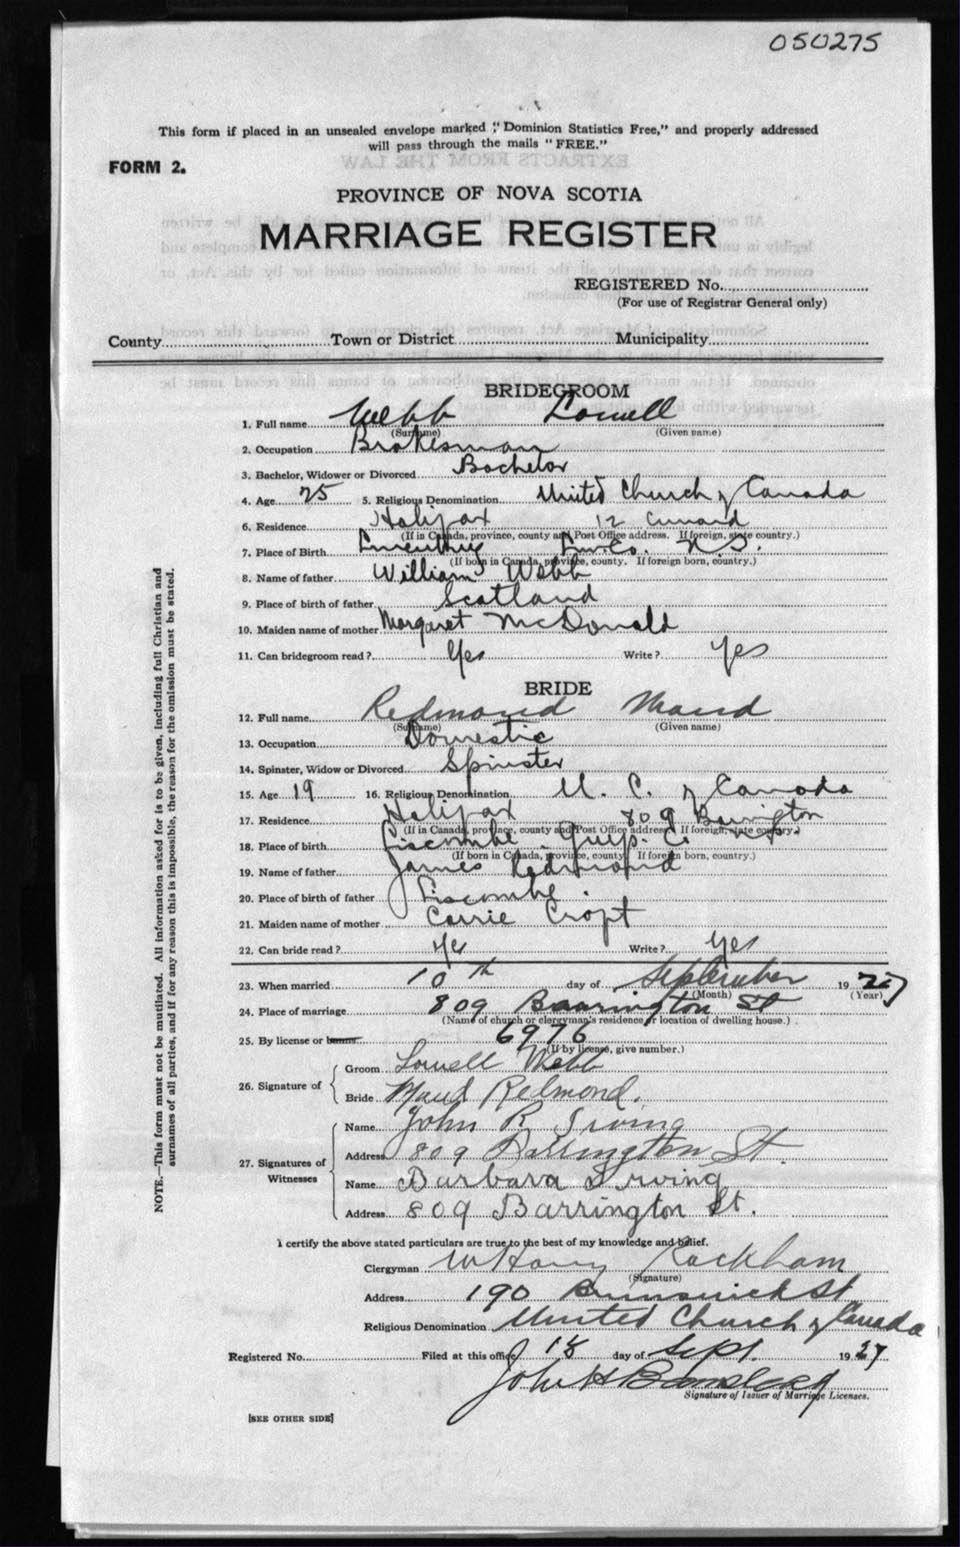 050275
This form if placed in an unsealed envelope marked "Dominion Statistics Free," and properly addressed
will pass through the mails "FREE."
FORM 2.
PROVINCE OF NOVA SCOTIA
MARRIAGE REGISTER
REGISTERED No.
(For use of Registrar General only)
County Town or District Municipality
BRIDEGROOM
1. Full name Webb Lowell
(Surname) (Given name)
2. Occupation Brakesman
3. Bachelor, Widower or Divorced Bachelor
4. Age 25 5. Religious Denomination United Church of Canada
6. Residence Halifax 12 Cunard
(If in Canada, province, county and Post Office address. If foreign, state country.)
7. Place of Birth Lun. Co. N.S.
(If born in Canada, province, county. If foreign born, country.)
8. Name of father William Webb
9. Place of birth of father Scotland
10. Maiden name of mother Margaret McDonald
11. Can bridegroom read? Yes Write? Yes
BRIDE
12. Full name Redmond Maud
(Surname) (Given name)
13. Occupation Domestic
14. Spinster, Widow or Divorced Spinster
15. Age 19 16. Religious Denomination U. C. of Canada
17. Residence Halifax 809 Barrington
(If in Canada, province, county and Post Office address. If foreign, state country.)
18. Place of birth Liscombe Guys. Co. N.S.
(If born in Canada, province, county. If foreign born, country.)
19. Name of father James Redmond
20. Place of birth of father Liscombe.
21. Maiden name of mother Carrie Croft
22. Can bride read? Yes Write? Yes
23. When married 10th day of September 1927
(Month) (Year)
24. Place of marriage 809 Barrington St
(Name of church or clergyman's residence or location of dwelling house.)
25. By license or banns 6976
(If by license, give number.)
26. Signature of
Groom Lowell Webb
Bride Maud Redmond.
27. Signatures of Witnesses
Name John R Irving
Address 809 Barrington St.
Name Barbara Irving
Address 809 Barrington St.
I certify the above stated particulars are true to the best of my knowledge and belief.
Clergyman W Harry Rackham
(Signature)
Address 190 Brunswick St
Religious Denomination United Church of Canada
Registered No. Filed at this office 18 day of Sept. 1927
John H
Signature of Issuer of Marriage Licenses.
[SEE OTHER SIDE]
NOTE.—This form must not be mutilated. All information asked for is to be given, including full Christian and
surnames of all parties, and if for any reason this is impossible, the reason for the omission must be stated.